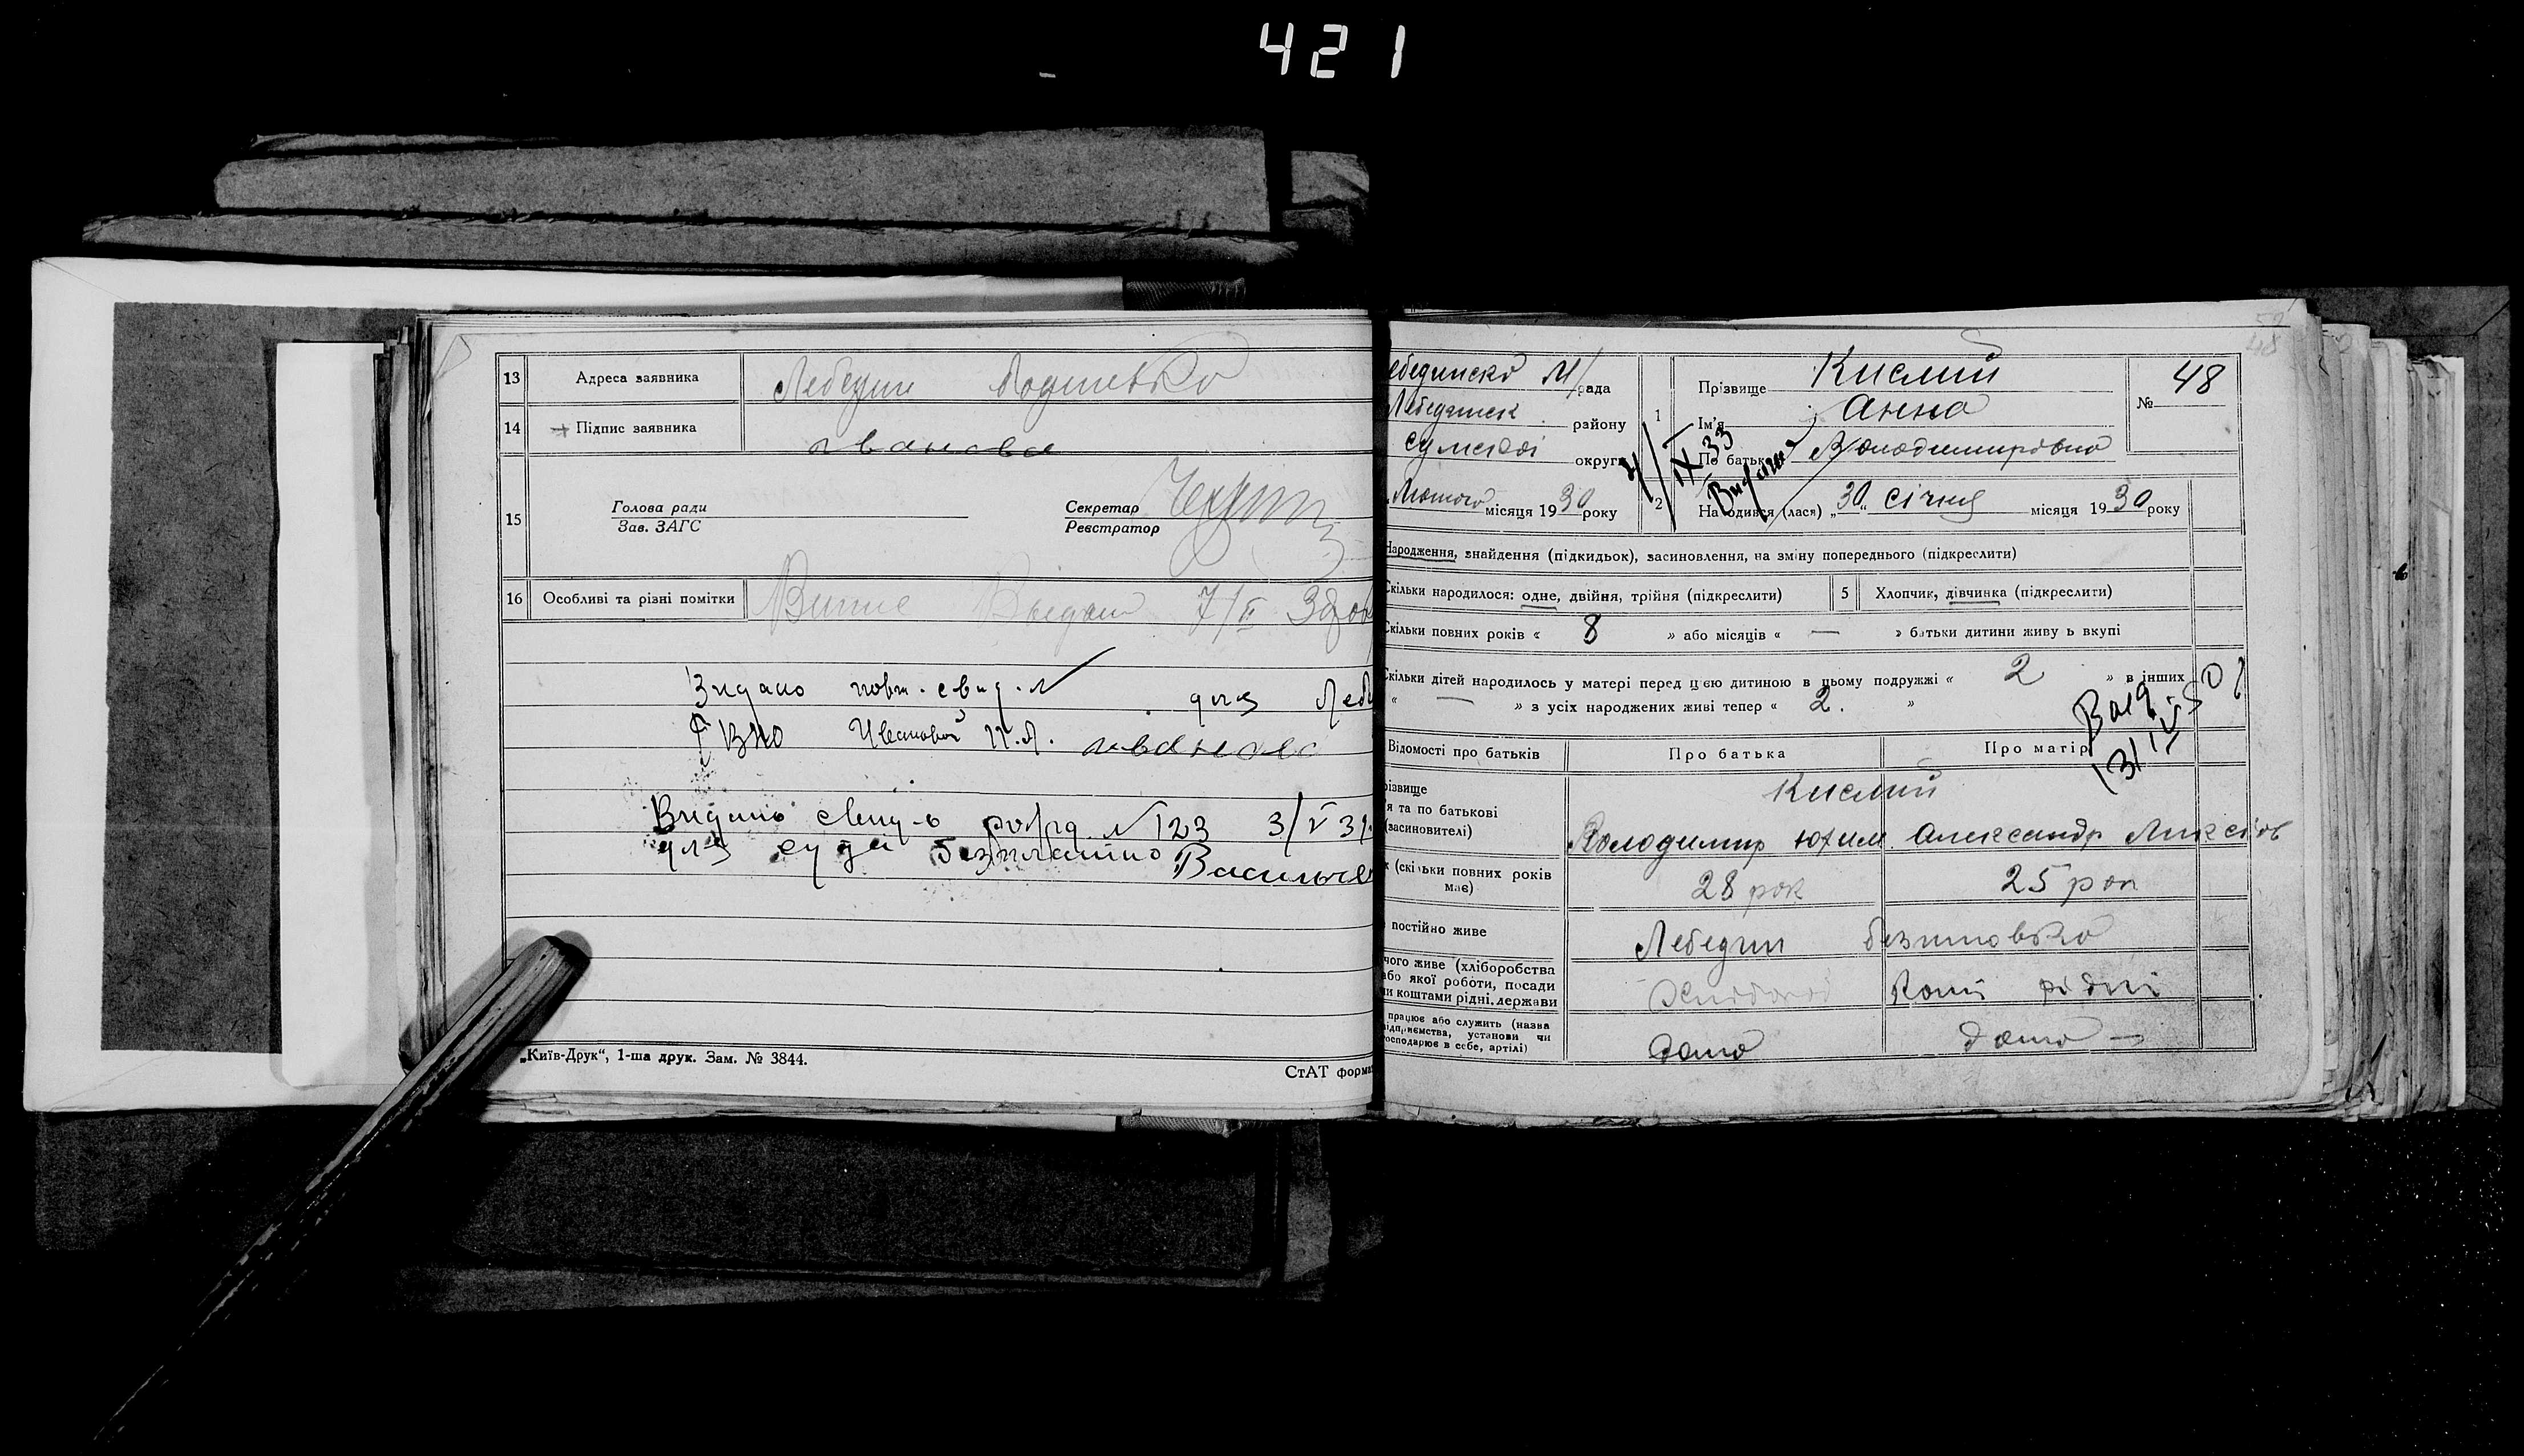 421
13 Адреса заявника Лебедин
14 Підпис заявника Іванова
15 Голова ради
Зав. ЗАГС
Секретар
Реєстратор
16 Особливі та різні помітки Видано 7/II
Видано повт. свид. № для Леб
РВНО Ивановой іванова
Видано свид-о розрд. №123 3/V 31
для суда безплатно
„Київ-Друк“, 1-ша друк. Зам. № 3844.
СтАТ форма
48
ебединско М/рада
Лебединск району
Сумської округи
Лютого місяця 1930 року
1 Прізвище Кислий
Ім'я Анна
По батьк Володимировна
№ 48
4/IX 33
2 На одився (лася) „30“ січня місяця 1930 року
Народження, знайдення (підкидьок), засиновлення, на зміну попереднього (підкреслити)
Скільки народилося: одне, двійня, трійня (підкреслити) 5 Хлопчик, дівчинка (підкреслити)
Скільки повних років « 8 » або місяців « — » батьки дитини живу ь вкупі
Скільки дітей народилось у матері перед цією дитиною в цьому подружжі « 2 » в інших
« — » з усіх народжених живі тепер « 2. »
13/IV 50
Відомості про батьків Про батька Про матір
різвище
я та по батькові
(засиновителі)
Кислий
Володимир Юхим. Александр
к (скільки повних років
має)
28 рок 25 рок
постійно живе Лебедин
чого живе (хліборобства
або якої роботи, посади
чи коштами рідні, держави
Кош рідні
працює або служить (назва
підприємства, установи чи
господарює в себе, артілі)
дома дома —